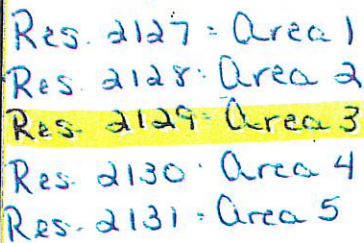 Res. 2127 - Area 1
Res. 2128 - Area 2
Res. 2129 - Area 3
Res. 2130 - Area 4
Res. 2131 - Area 5